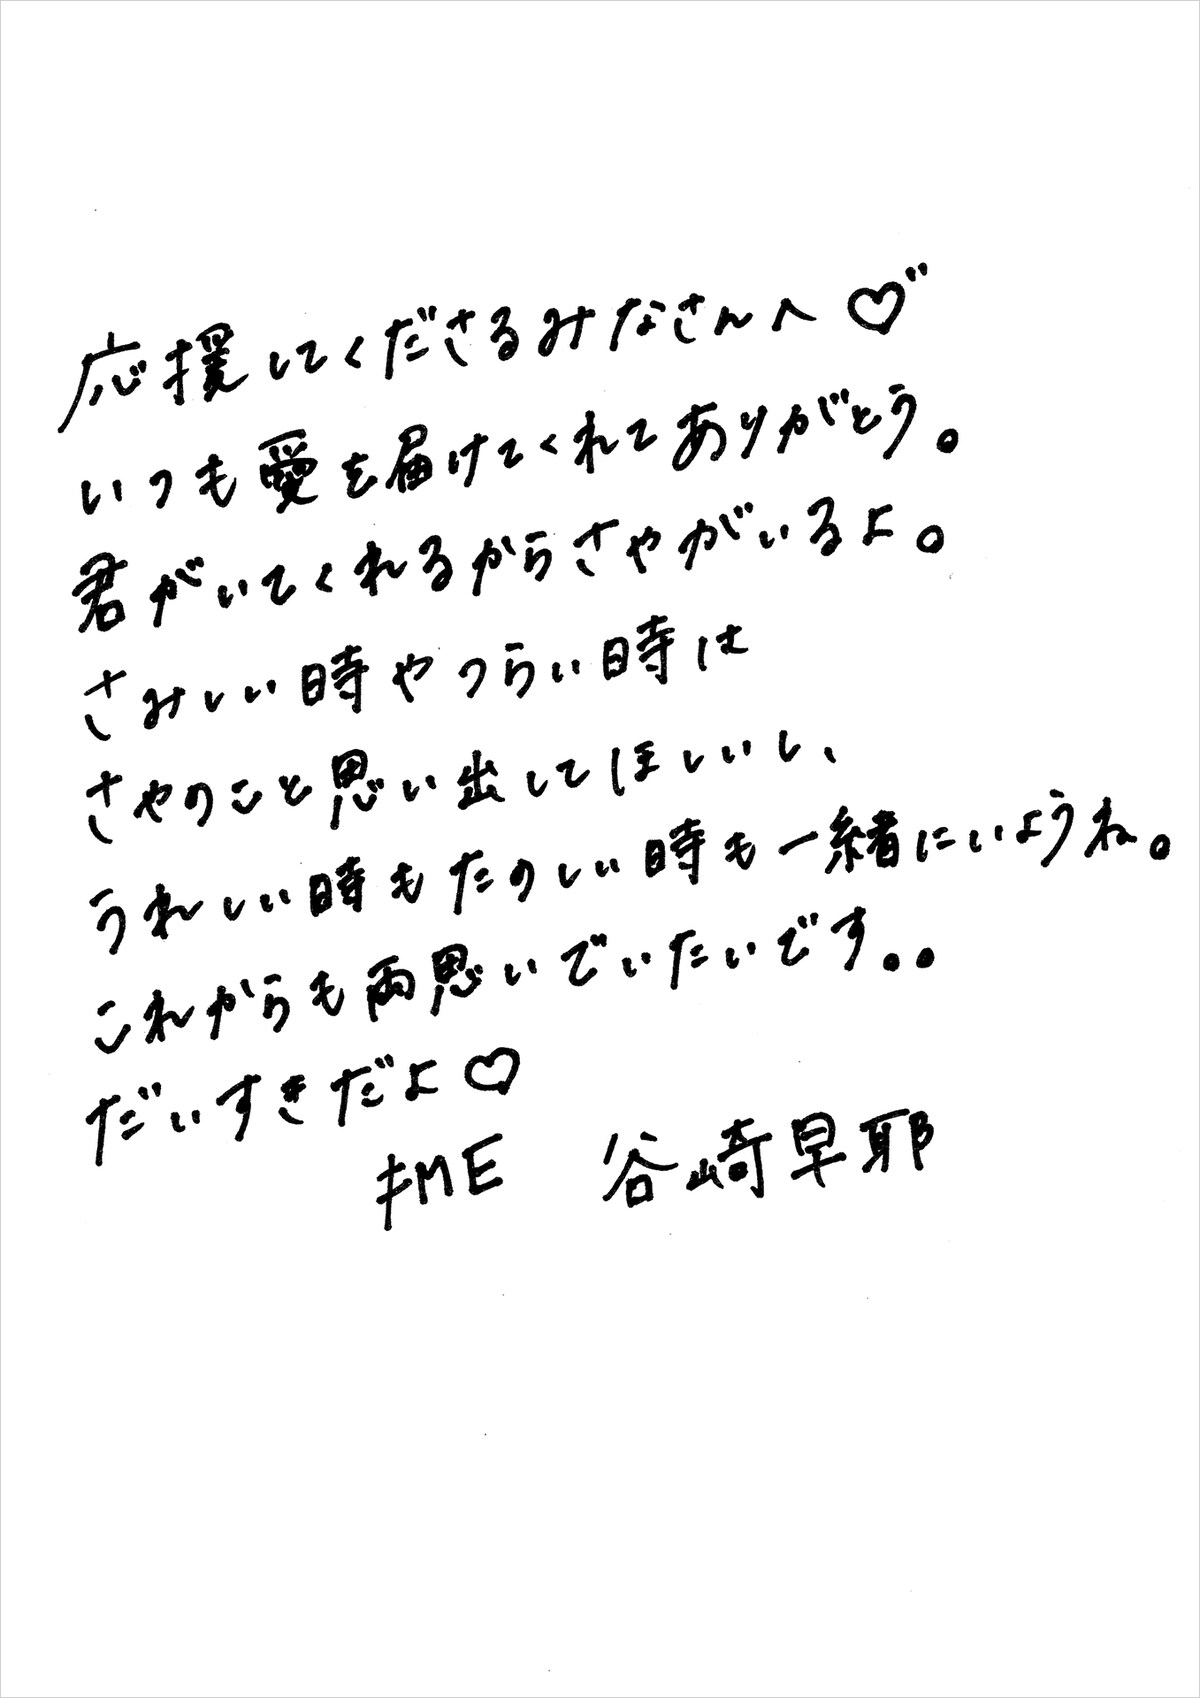 応援してくださるみなさんへ♡"
いつも愛を届けてくれてありがとう。
君がいてくれるからさやがいるよ。
さみしい時やつらい時は
さやのこと思い出してほしいし、
うれしい時もたのしい時も一緒にいようね。
これからも両思いでいたいです。。
だいすきだよ♡
≠ME 谷崎早耶